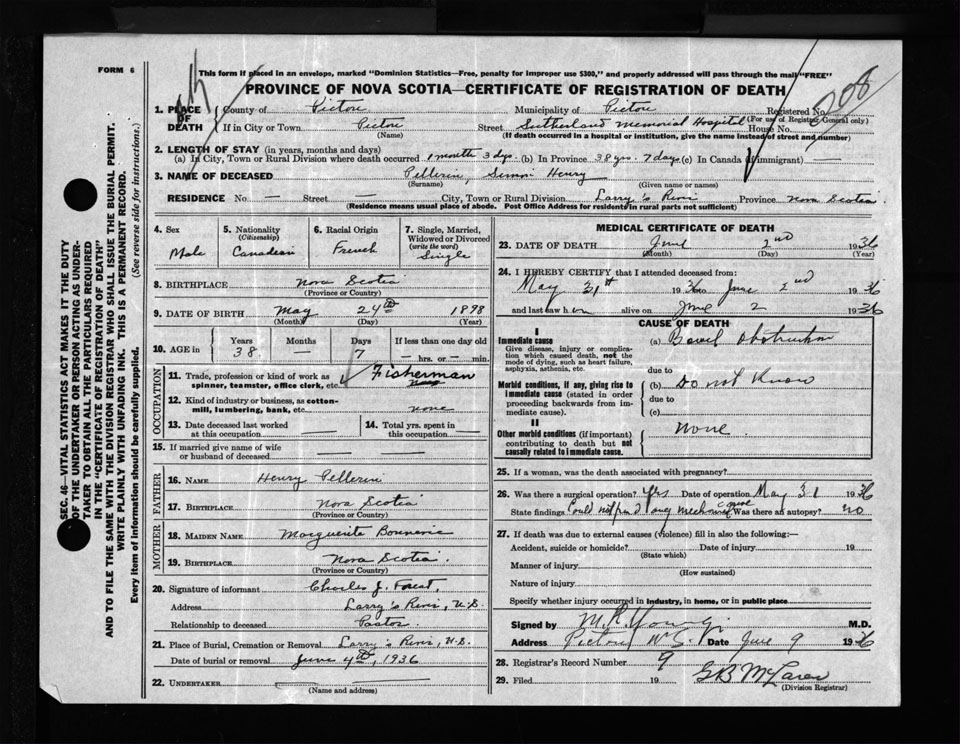 FORM 6
This form if placed in an envelope, marked "Dominion Statistics—Free, penalty for improper use $300," and properly addressed will pass through the mail "FREE"
PROVINCE OF NOVA SCOTIA—CERTIFICATE OF REGISTRATION OF DEATH
208
1. PLACE OF DEATH County of Pictou Municipality of Pictou Registered No. (For use of Registrar General only)
If in City or Town Pictou (Name) Street Sutherland Memorial Hospital House No.
(If death occurred in a hospital or institution, give the name instead of street and number)
2. LENGTH OF STAY (in years, months and days)
(a) In City, Town or Rural Division where death occurred 1 month 3 dys. (b) In Province 38 yrs. 7 days (c) In Canada (if immigrant) —
3. NAME OF DECEASED Pellerin, Simon Henry
(Surname) (Given name or names)
RESIDENCE No. — Street — City, Town or Rural Division Larry's River Province Nova Scotia
(Residence means usual place of abode. Post Office Address for residents in rural parts not sufficient)
4. Sex Male
5. Nationality (Citizenship) Canadian
6. Racial Origin French
7. Single, Married, Widowed or Divorced (write the word) Single
8. BIRTHPLACE Nova Scotia
(Province or Country)
9. DATE OF BIRTH May 24th 1898
(Month) (Day) (Year)
10. AGE in Years 38 Months — Days 7 If less than one day old — hrs. or — min.
OCCUPATION
11. Trade, profession or kind of work as spinner, teamster, office clerk, etc. Fisherman
12. Kind of industry or business, as cotton-mill, lumbering, bank, etc. none
13. Date deceased last worked at this occupation —
14. Total yrs. spent in this occupation —
15. If married give name of wife or husband of deceased —
FATHER
16. NAME Henry Pellerin
17. BIRTHPLACE Nova Scotia
(Province or Country)
MOTHER
18. MAIDEN NAME Marguerite
19. BIRTHPLACE Nova Scotia.
(Province or Country)
20. Signature of informant Charles J. Forest,
Address Larry's River, N.S.
Relationship to deceased Pastor
21. Place of Burial, Cremation or Removal Larry's River, N.S.
Date of burial or removal June 4th, 1936
22. UNDERTAKER —
(Name and address)
MEDICAL CERTIFICATE OF DEATH
23. DATE OF DEATH June 2nd 1936
(Month) (Day) (Year)
24. I HEREBY CERTIFY that I attended deceased from:
May 31st 1936 to June 2nd 1936
and last saw him alive on June 2 1936
CAUSE OF DEATH
I
Immediate cause (a) Bowel Obstruction
Give disease, injury or complication which caused death, not the mode of dying, such as heart failure, asphyxia, asthenia, etc.
due to
Morbid conditions, if any, giving rise to immediate cause (stated in order proceeding backwards from immediate cause). (b) Do not Know
due to
(c)
II
Other morbid conditions (if important) contributing to death but not causally related to immediate cause. None
25. If a woman, was the death associated with pregnancy?
26. Was there a surgical operation? Yes Date of operation May 31 1936
State findings Could not find any mechanical cause Was there an autopsy? no
27. If death was due to external causes (violence) fill in also the following:—
Accident, suicide or homicide? Date of injury 19
(State which)
Manner of injury
(How sustained)
Nature of injury
Specify whether injury occurred in industry, in home, or in public place
Signed by M.R. Young M.D.
Address Pictou N.S. Date June 9 1936
28. Registrar's Record Number 9
29. Filed 19 G B McLaren
(Division Registrar)
SEC. 46—VITAL STATISTICS ACT MAKES IT THE DUTY
OF THE UNDERTAKER OR PERSON ACTING AS UNDER-
TAKER TO OBTAIN ALL THE PARTICULARS REQUIRED
IN THE "CERTIFICATE OF REGISTRATION OF DEATH"
AND TO FILE THE SAME WITH THE DIVISION REGISTRAR WHO SHALL ISSUE THE BURIAL PERMIT.
WRITE PLAINLY WITH UNFADING INK. THIS IS A PERMANENT RECORD.
Every item of information should be carefully supplied. (See reverse side for instructions.)